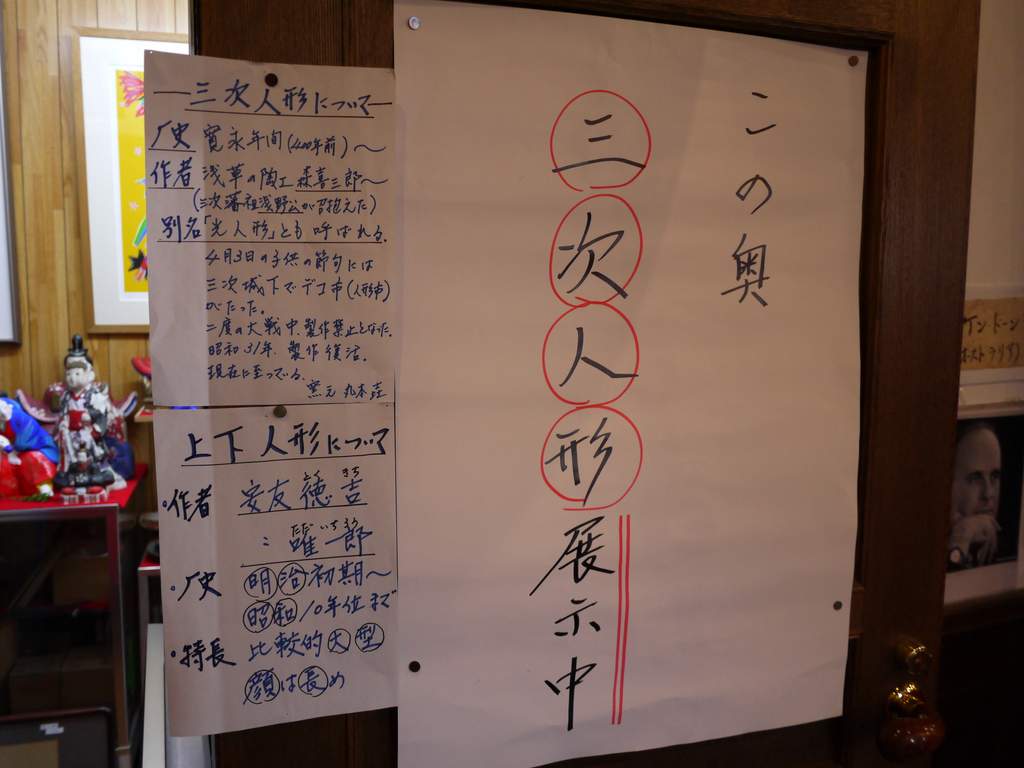 この奥
三次人形展示中
三次人形について
厂史 寛永年間(400年前)～
作者 浅草の陶工 森喜三郎～
(三次藩祖浅野公が召抱えた)
別名「光人形」とも呼ばれる.
4月3日の子供の節句には
三次城下でデコ市(人形市)
がたった.
二度の大戦中 製作禁止となった.
昭和31年. 製作復活.
現在に至っている.
窯元 丸本
上下人形について
・作者 安友徳吉
きち
〃 躍一郎
・厂史 明治初期～
昭和10年位まで
・特長 比較的大型
顔は長め
ケンドーン